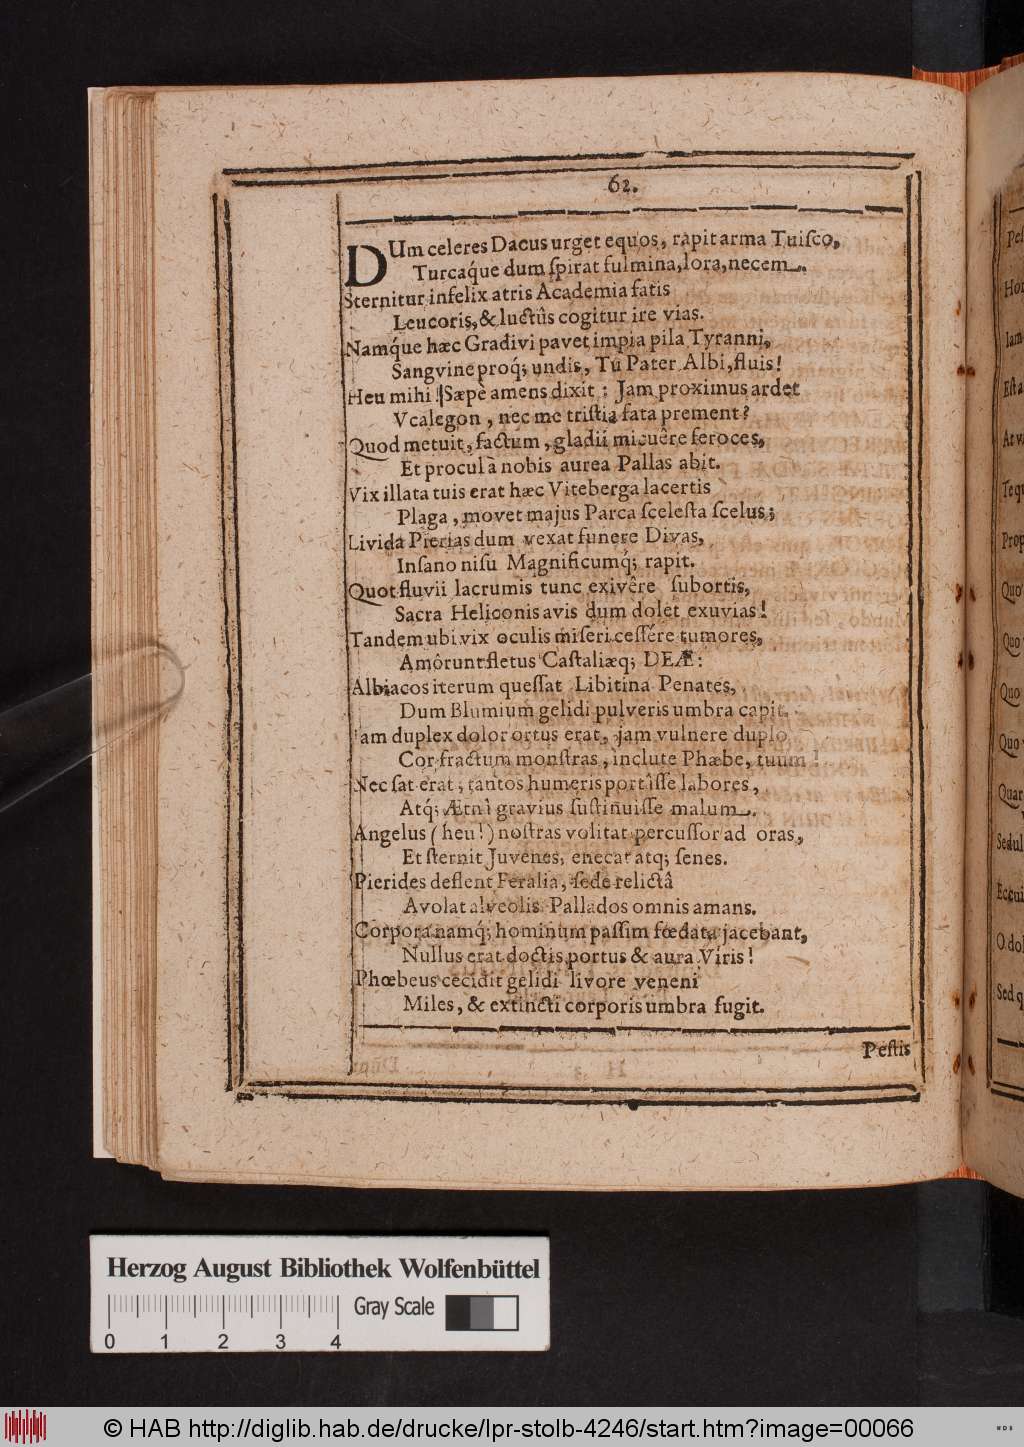 62.
DUm celeres Dacus urget equos, rapit arma Tuiſco,
Turcaq́ue dum ſpirat fulmina, lora, necem.
Sternitur infelix atris Academia fatis
Leucoris, & luctûs cogitur ire vias.
Namq́ue hæc Gradivi pavet impia pila Tyranni,
Sangvine proq́; undis, Tu Pater Albi, fluis!
Heu mihi! Sæpè amens dixit: Jam proximus ardet
Vcalegon, nec me triſtia fata prement?
Quod metuit, factum, gladii micuêre feroces,
Et procul à nobis aurea Pallas abit.
Vix illata tuis erat hæc Viteberga lacertis
Plaga, movet majus Parca ſceleſta ſcelus;
Livida Pierias dum vexat funere Divas,
Inſano niſu Magnificumq́; rapit.
Quot fluvii lacrumis tunc exivêre ſubortis,
Sacra Heliconis avis dum dolet exuvias!
Tandem ubi vix oculis miſeri ceſſére tumores,
Amôrunt fletus Caſtaliæq; DEÆ:
Albiacos iterum queſſat Libitina Penates,
Dum Blumium gelidi pulveris umbra capit.
Jam duplex dolor ortus erat, jam vulnere duplo
Cor fractum monſtras, inclute Phæbe, tuum!
Nec ſat erat, tantos humeris portâſſe labores,
Atq́; Ætnâ gravius ſuſtinuiſſe malum.
Angelus (heu!) noſtras volitat percuſſor ad oras,
Et ſternit Juvenes, enecat atq; ſenes.
Pierides deflent Feralia, ſede relictâ
Avolat alveolis Pallados omnis amans.
Corpora namq́; hominum paſſim fœdata jacebant,
Nullus erat doctis portus & aura Viris!
Phœbeus cecidit gelidi livore veneni
Miles, & extincti corporis umbra fugit.
Peſtis
Herzog August Bibliothek Wolfenbüttel
Gray Scale
0 1 2 3 4
© HAB http://diglib.hab.de/drucke/lpr-stolb-4246/start.htm?image=00066